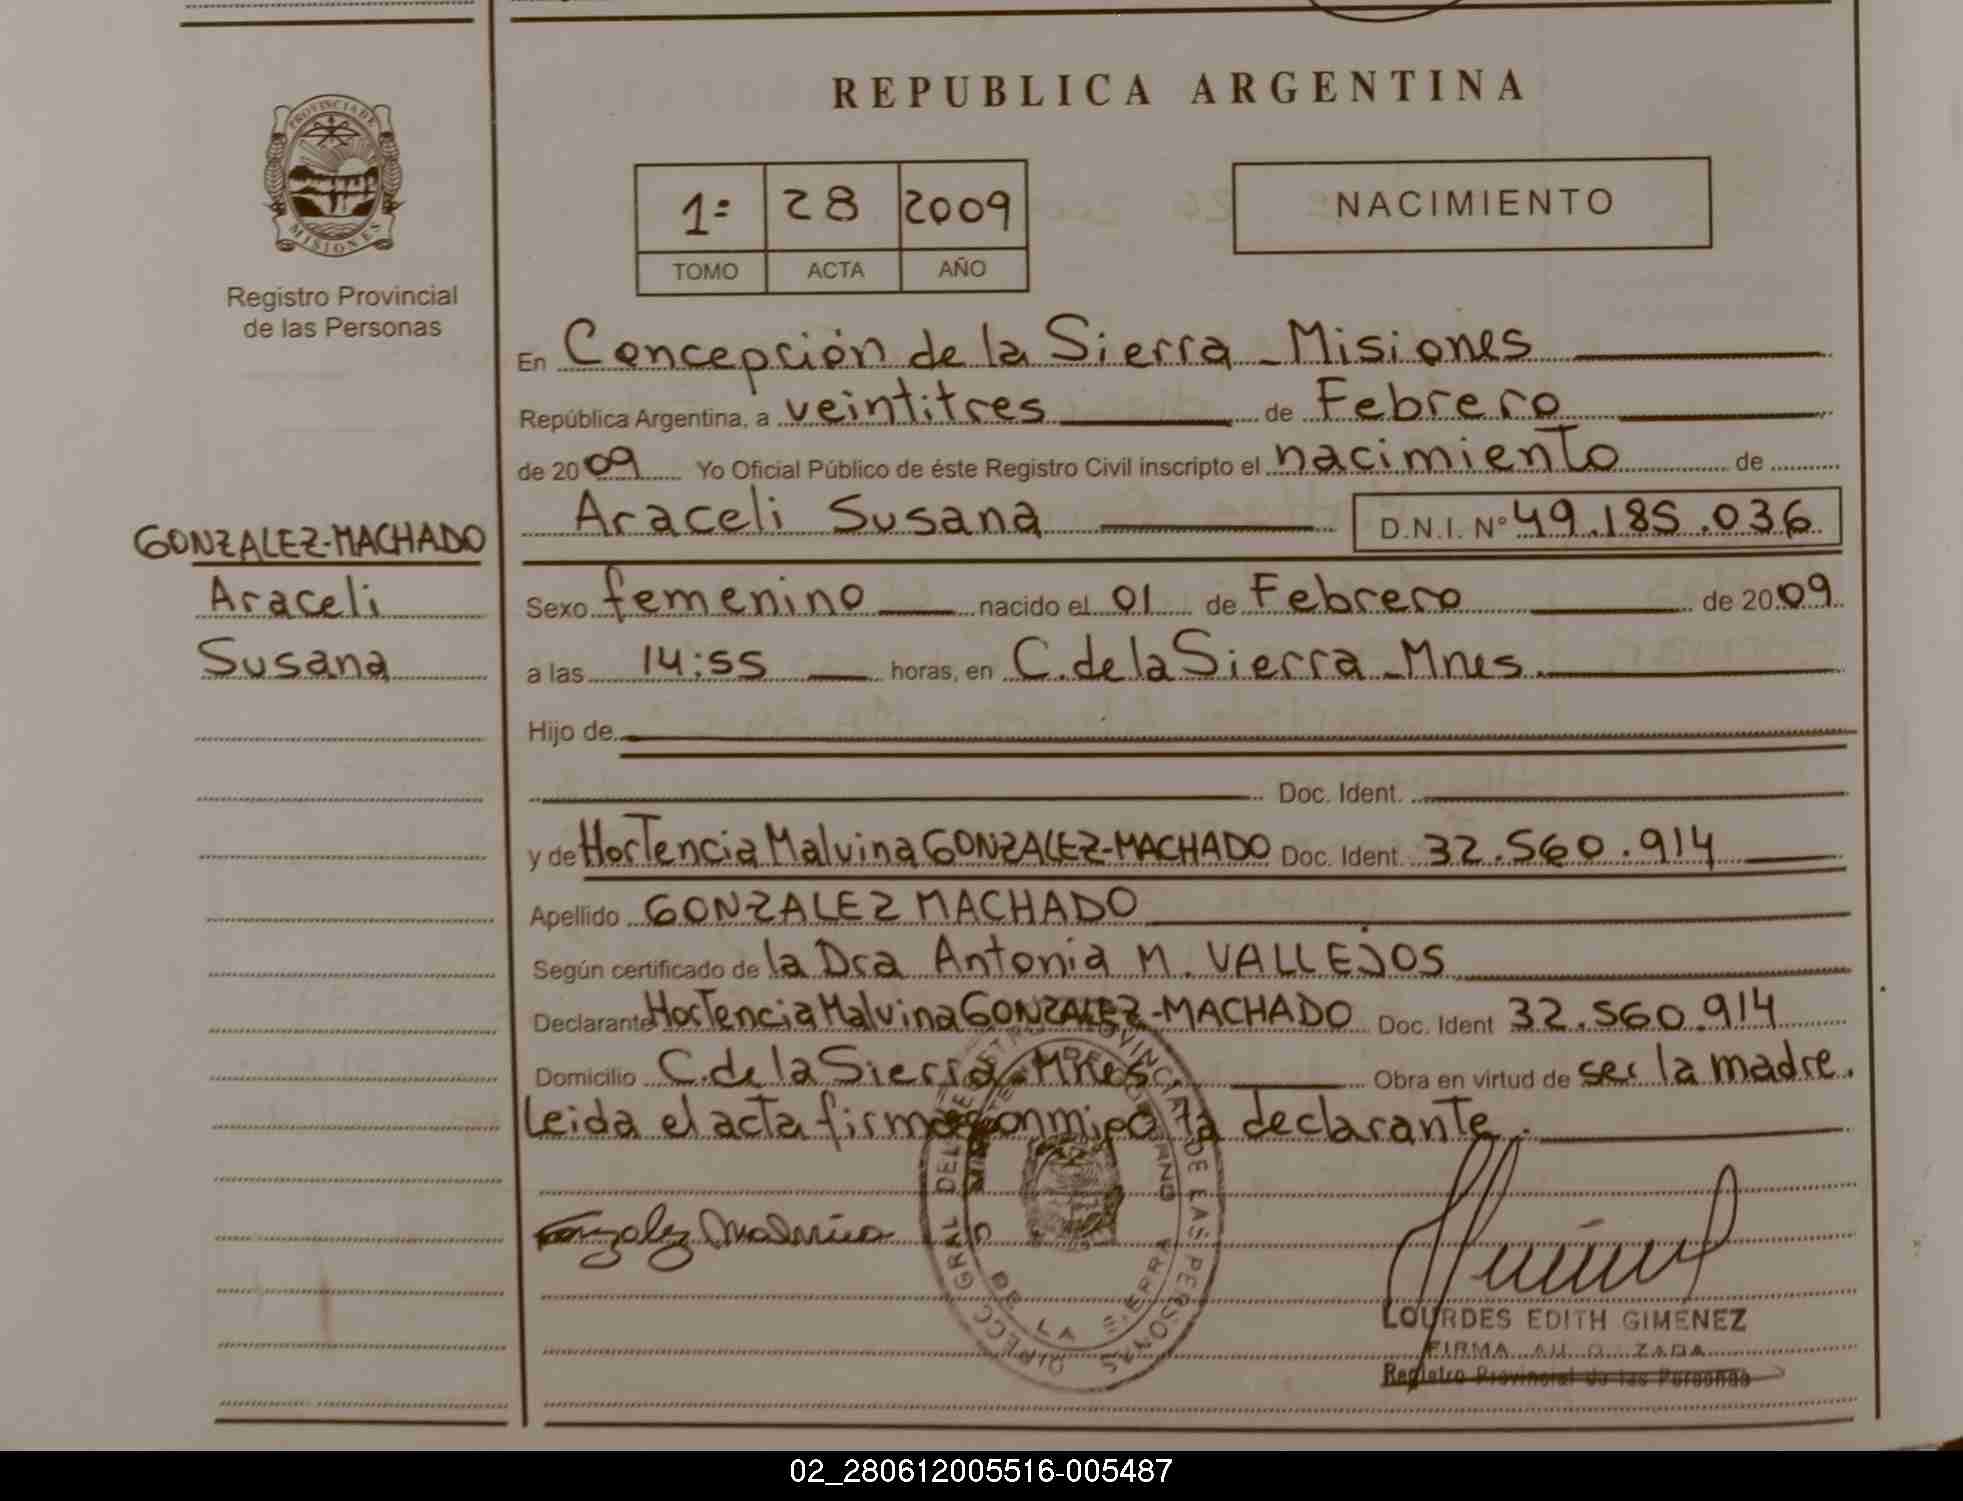 REPUBLICA ARGENTINA
PROVINCIA DE
MISIONES
Registro Provincial
de las Personas
1= 28 2009
TOMO ACTA AÑO
NACIMIENTO
En Concepción de la Sierra - Misiones
República Argentina, a veintitres de Febrero
de 2009 Yo Oficial Público de éste Registro Civil inscripto el nacimiento de
Araceli Susana D.N.I. N° 49.185.036
GONZALEZ-MACHADO
Araceli
Susana
Sexo femenino nacido el 01 de Febrero de 2009
a las 14:55 horas, en C. de la Sierra - Mnes.
Hijo de
Doc. Ident.
y de Hortencia Malvina GONZALEZ-MACHADO Doc. Ident. 32.560.914
Apellido GONZALEZ MACHADO
Según certificado de la Dra Antonia M. VALLEJOS
Declarante Hortencia Malvina GONZALEZ-MACHADO Doc. Ident 32.560.914
Domicilio C. de la Sierra - Mnes. Obra en virtud de ser la madre.
Leida el acta firma conmigo la declarante.
DE LAS PERSONAS
DE LA SIERRA
LOURDES EDITH GIMENEZ
FIRMA
Registro Provincial de las Personas
02_280612005516-005487